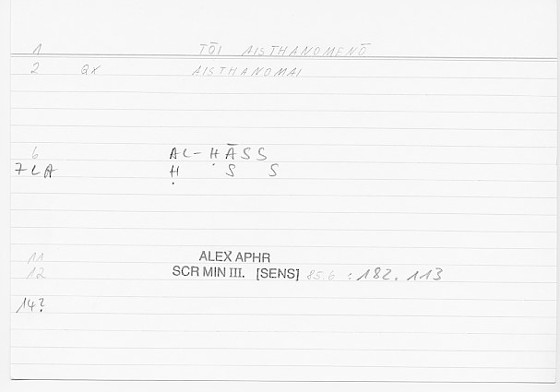 1 TŌI AISTHANOMENŌ
2 QX AISTHANOMAI
6 AL-ḤĀSS
7LA Ḥ S S
11 ALEX APHR
12 SCR MIN III. [SENS] 856 : 182. 113
14?